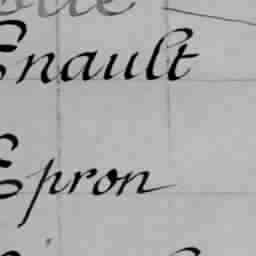 Enault
Epron